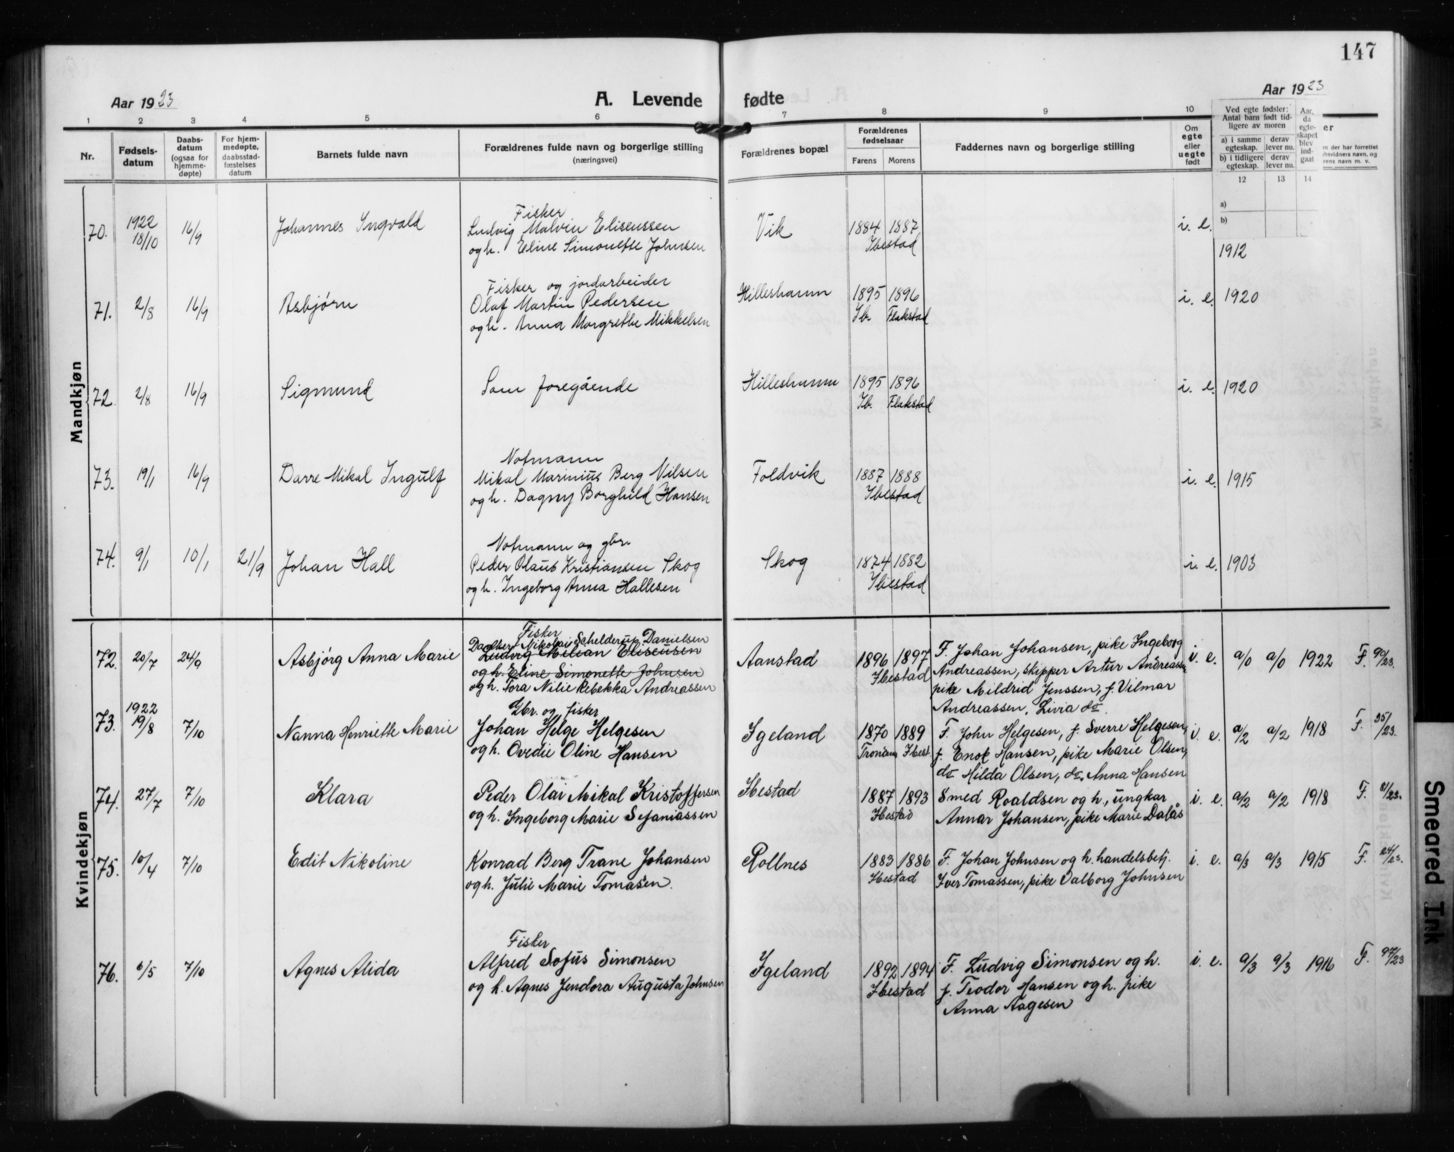 147
Aar 1923
A. Levende fødte
Aar 1923
1 2 3 4 5 6 7 8 9 10 12 13 14
Nr.
Fødsels-datum
Daabs-datum (ogsaa for hjemme-døpte)
For hjem-medøpte, daabsstad-fæstelses datum
Barnets fulde navn
Forældrenes fulde navn og borgerlige stilling (næringsvei)
Forældrenes bopæl
Forældrenes fødselsaar
Farens Morens
Faddernes navn og borgerlige stilling
Om egte eller uegte født
Ved egte fødsler: Antal barn født tid-ligere av moren
a) i samme egteskap. derav lever nu.
b) i tidligere egteskap. derav lever nu.
Aar, da egte-skapet blev ind-gaat
a)
b)
Mandkjøn
70. 1922 18/10 16/9 Johannes Ingvald
Fisker
Ludvig Malvin Eliseussen
og h. Eline Simonette Johnsen
Vik 1884 1887 Ibestad i. e. 1912
71. 2/8 16/9 Asbjørn
Fisker og jordarbeider
Olaf Martin Pedersen
og h. Anna Margrethe Mikkelsen
Hilleshamn 1895 1896 Ib. Flakstad i. e. 1920
72. 2/8 16/9 Sigmund
Som foregående
Hilleshamn 1895 1896 Ib. Flakstad i. e. 1920
73. 19/1 16/9 Darre Mikal Ingulf
Notmann
Mikal Marinius Berg Nilsen
og h. Dagny Borghild Hansen
Foldvik 1887 1888 Ibestad i. e. 1915
74. 9/1 10/1 21/9 Johan Hall
Notmann og gbr.
Peder Olaus Kristiansen Skog
og h. Ingeborg Anna Hallesen
Skog 1874 1882 Ibestad i. e. 1903
Kvindekjøn
72. 20/7 24/9 Asbjørg Anna Marie
Fisker
Nikolai Schelderup Danielsen
Ludvig Eliseusen
og h. Eline Simonette Johnsen
og h. Tora Nilie Rebekka Andreassen
Aanstad 1896 1897 Ibestad
F. Johan Johansen, pike Ingeborg
Andreassen, skipper Artur Andreassen
pike Mildrid Jenssen, f. Vilmar
Andreassen, Livia do.
i. e. a/0 a/0 1922 F.
73. 1922 19/8 7/10 Nanna Henriette Marie
Gbr. og fisker
Johan Helge Helgesen
og h. Ovedie Oline Hansen
Igeland 1870 1889 Ibest
F. John Helgesen, f. Sverre Helgesen,
f. Enok Hansen, pike Marie Olsen,
do Hilda Olsen, do Anna Hansen
i. e. a/2 a/2 1918 F. 25/23.
74. 27/7 7/10 Klara
Peder Olai Mikal Kristoffersen
og h. Ingeborg Marie Sefaniassen
Ibestad 1887 1893 Ibestad
Smed Roaldsen og h, ungkar
Annar Johansen, pike Marie Dalås
i. e. a/2 a/2 1918 F.
75. 10/4 7/10 Edit Nikoline
Konrad Berg Trane Johansen
og h. Julie Marie Tomasen.
Rollnes 1883 1886 Ibestad
F. Johan Johnsen og h. handelsbetj.
Iver Tomassen, pike Valborg Johnsen
i. e. a/3 a/3 1915 F.
76. 6/5 7/10 Agnes Alida
Fisker
Alfred Sofus Simonsen
og h. Agnes Jendora Augusta Johnsen
Igeland 1892 1894 Ibestad
F. Ludvig Simonsen og h.
f. Teodor Hansen og h. pike
Anna Aagesen
i. e. a/3 a/3 1916 F.
Smeared Ink